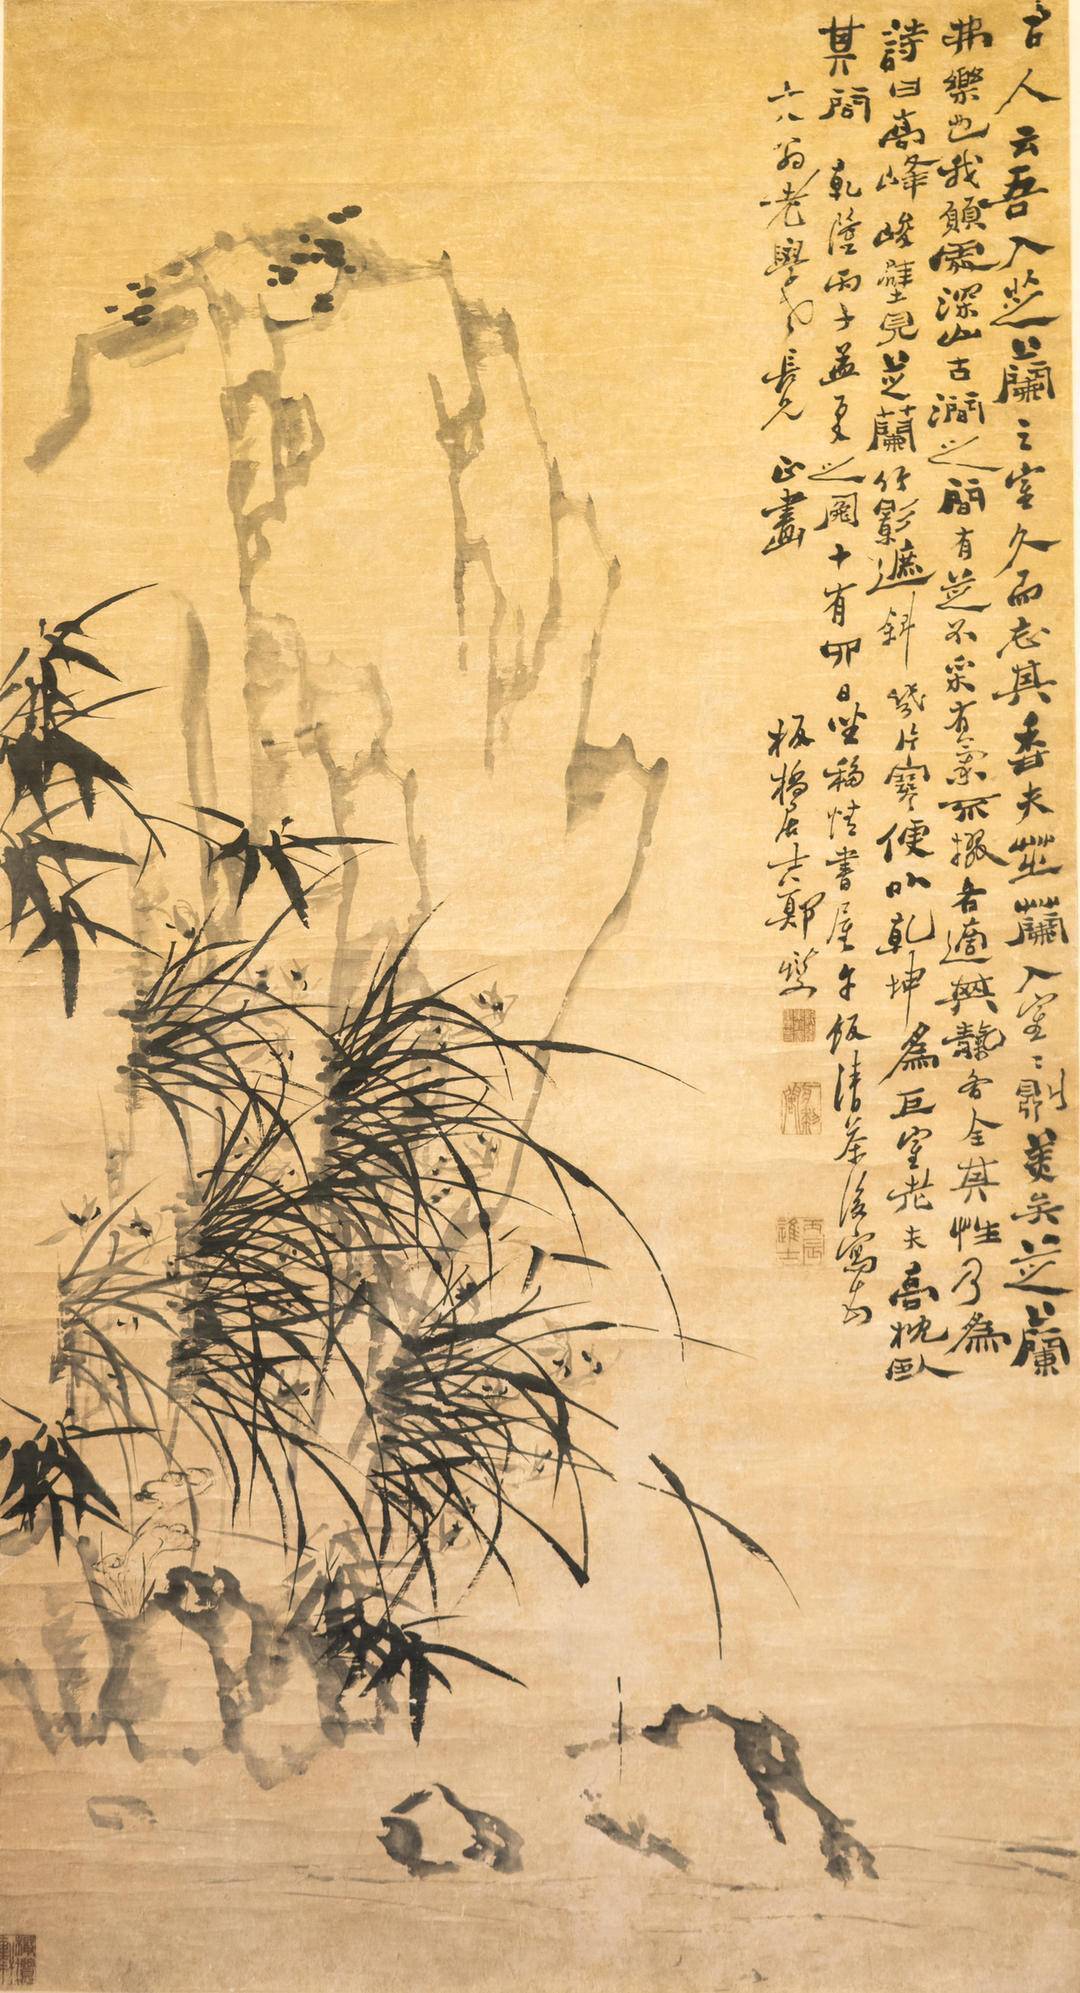 古人云吾入芝蘭之室久而忘其香夫芝蘭入室室則美矣芝蘭
弗樂也我願處深山古澗之間有芝不采有蘭不掇各適其靜各全其性乃為
詩曰高峰峻壁見芝蘭竹影遮斜幾片寒便以乾坤為巨室老夫高枕臥
其間 乾隆丙子孟夏之閏十有卯日坐移情書屋午飯清茶後寫為
六八翁老學弟長兄正畫 板橋居士鄭燮
丙辰進士